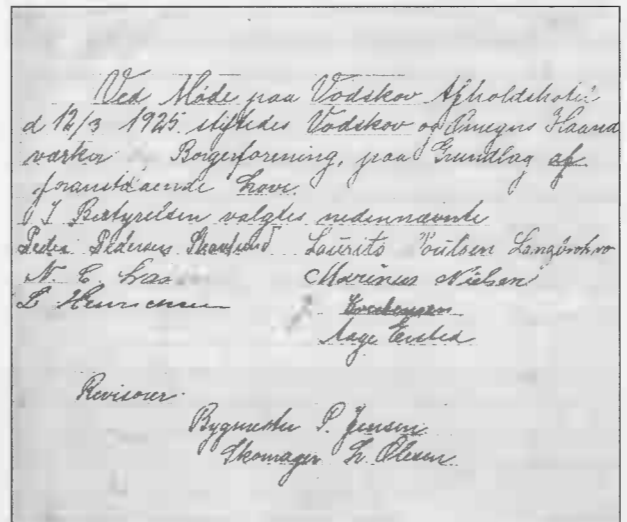 Ved Møde paa Vodskov Afholdshotel
d 12/3 1925 stiftedes Vodskov og Omegns Haand
værker Borgerforening, paa Grundlag af
foranstaaende Love.
I Bestyrelsen valgtes nedennævnte
Peder Pedersen Laurits Poulsen Langbrokro
N. C. Marinus Nielsen
L Henrichsen
Aage Ersted
Revisorer.
Bygmester P. Jensen
Skomager Olesen